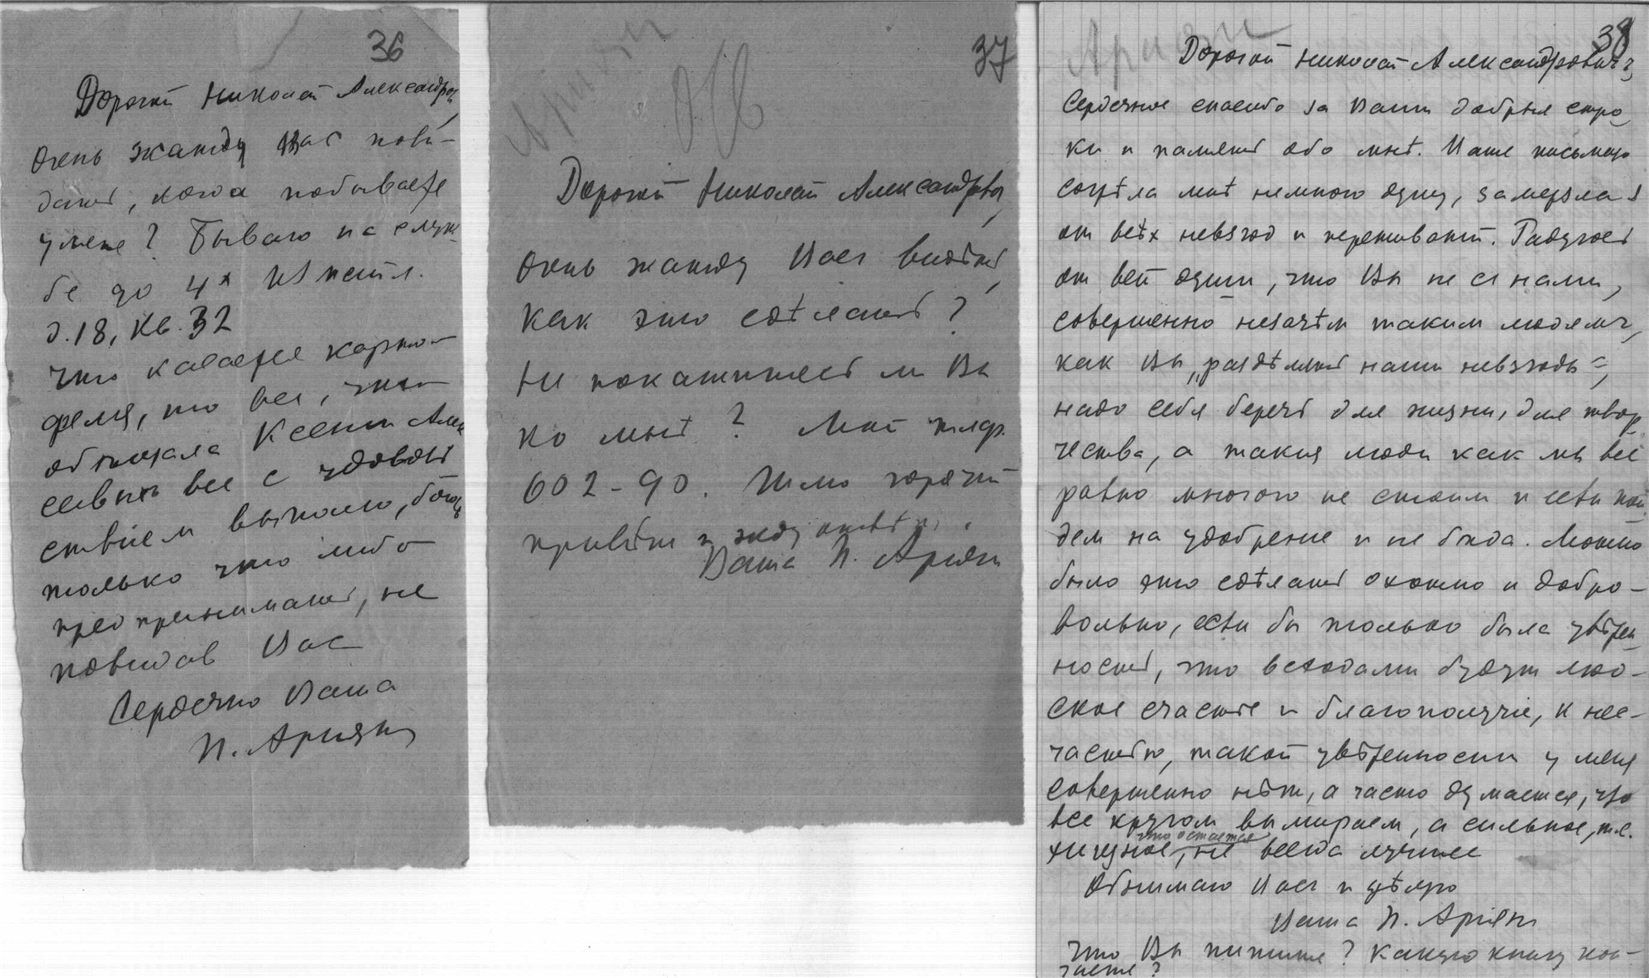 36
Дорогой Николай Александров.
Очень жажду Вас пови-
дать, когда побываете
у меня? Бываю на служ
бе до 4х
д. 18, кв. 32
Что касается
то все, что
обещала Ксении Алек
все с удоволь
ствием выполню, боюсь
только что либо
предпринимать, не
повидав Вас
Сердечно Ваша
П. Ариян
37
Ариян
Дорогой Николай Александров.,
Очень жажду Вас видѣть,
как это сдѣлать?
Не покажитесь ли Вы
ко мнѣ? Мой тлф.
602-90. Шлю горячий
привѣт и жду отвѣта.
Ваша П. Ариян
38
Ариян
Дорогой Николай Александрович,
Сердечное спасибо за Ваши добрыя стро
ки и память обо мнѣ. Ваше письмецо
согрѣло мнѣ немного душу, замерзла я
от всѣх невзгод и переживаний. Радуюсь
от всей души, что Вы не с нами,
совершенно незачѣм таким людям,
как Вы, „раздѣлять наши невзгоды",
надо себя беречь для жизни, для твор
чества, а такия люди как мы все
равно многого не стоим и если пой
дем на удобрение и не бѣда. Можно
было это сдѣлать охотно и добро-
вольно, если бы только была увѣрен
ность, что всходами будут люд-
ское счастье и благополучие, к нес-
частью, такой увѣренности у меня
совершенно нѣт, а часто думается, что
все кругом вымираем, а сильное, т.е.
что остается
хищное, не всегда лучшее
Обнимаю Вас и цѣлую
Ваша П. Ариян
Что Вы пишите? Какую книгу кон-
чаете?